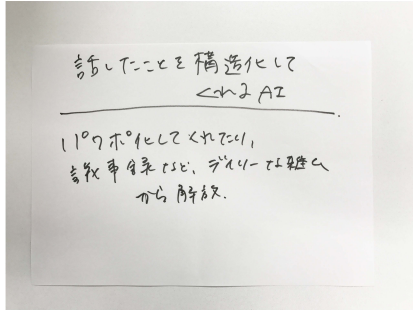 話したことを構造化して
くれるAI
パワポ化してくれたり、
議事録など、デイリーな雑務
から解放.